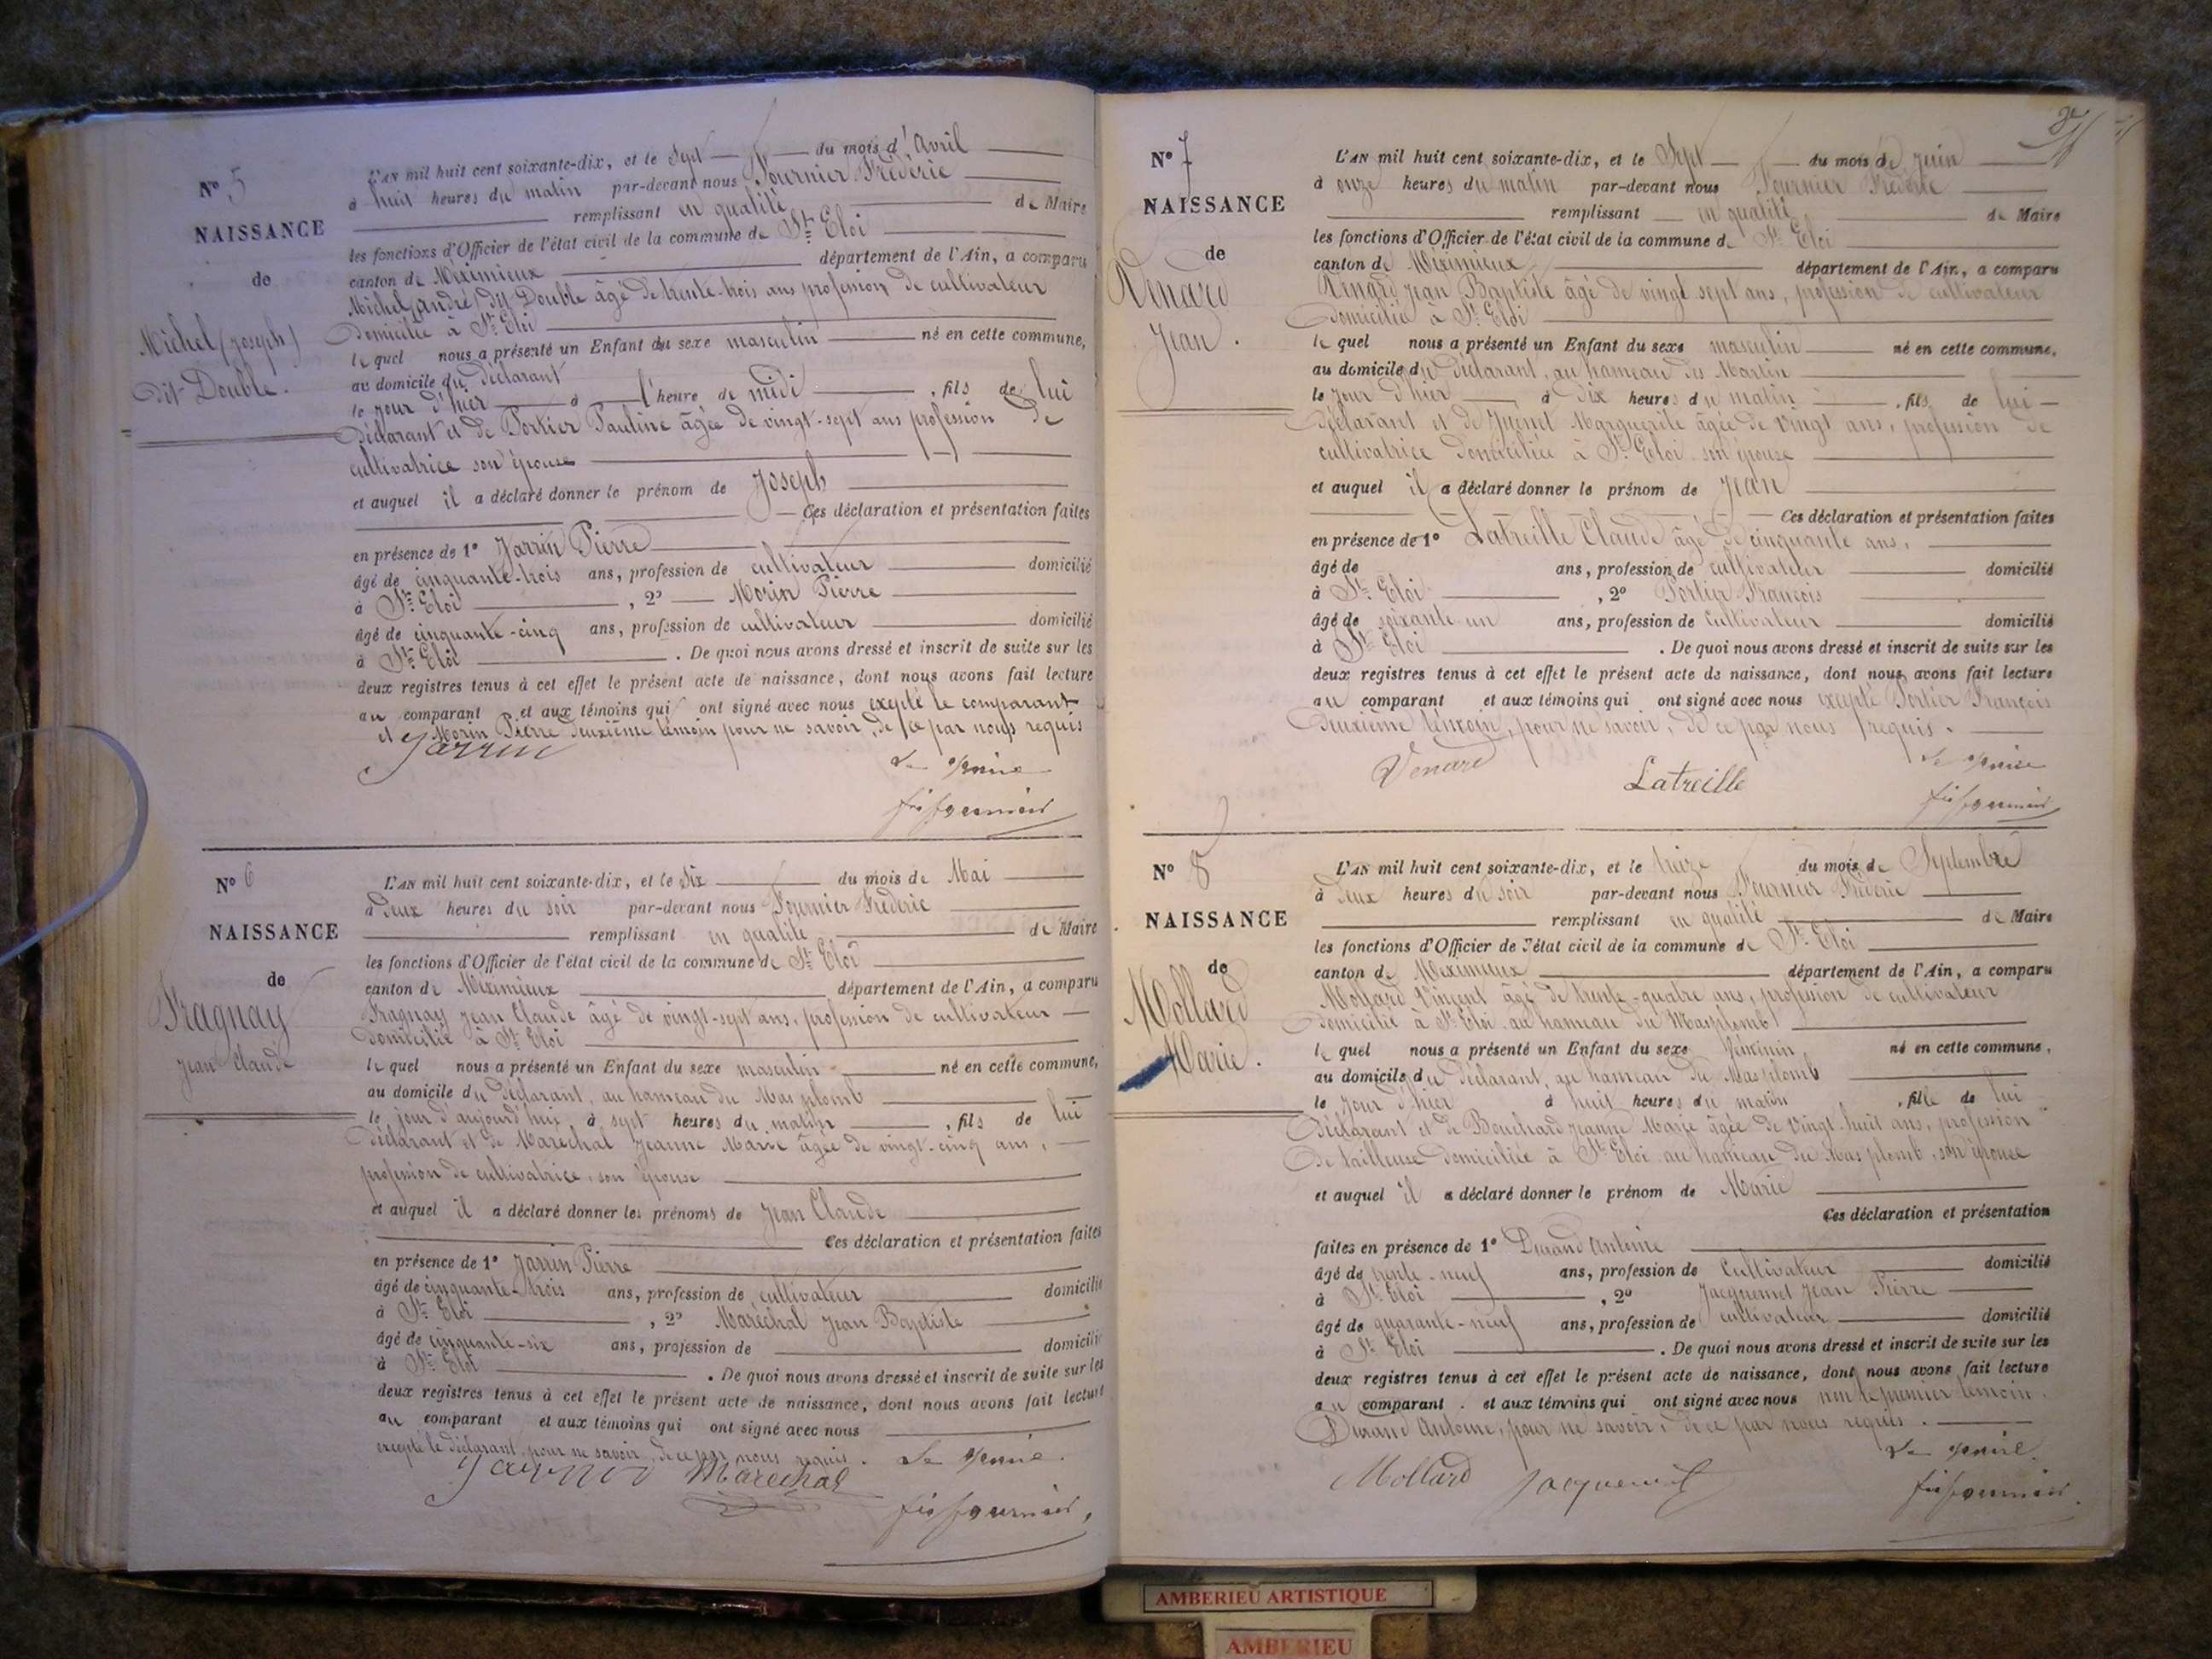 N° 5
NAISSANCE
de
Michel (Joseph)
dit Double.
L'AN mil huit cent soixante-dix, et le Sept du mois d'Avril
à huit heures du matin par-devant nous Fournier Frédéric
remplissant en qualité de Maire
les fonctions d'Officier de l'état civil de la commune de St Eloi
canton de Méximieux département de l'Ain, a comparu
Michel (André) dit Double âgé de trente-trois ans profession de cultivateur
Domicilié à St Eloi
lequel nous a présenté un Enfant du sexe masculin né en cette commune,
au domicile du déclarant
le jour d'hier à l'heure de midi, fils de lui
Déclarant et de Portier Pauline âgée de vingt-sept ans profession de
cultivatrice son épouse
et auquel il a déclaré donner le prénom de Joseph
Ces déclaration et présentation faites
en présence de 1° Jarrin Pierre
âgé de cinquante-trois ans, profession de cultivateur domicilié
à St Eloi, 2° Morin Pierre
âgé de cinquante-cinq ans, profession de cultivateur domicilié
à St Eloi. De quoi nous avons dressé et inscrit de suite sur les
deux registres tenus à cet effet le présent acte de naissance, dont nous avons fait lecture
au comparant et aux témoins qui ont signé avec nous excepté le comparant
et Morin Pierre deuxième témoin pour ne savoir, de ce par nous requis
Jarrin
Le Maire
N° 6
NAISSANCE
de
Fragnay
Jean Claude
L'AN mil huit cent soixante-dix, et le Six du mois de Mai
à deux heures du soir par-devant nous Fournier Frédéric
remplissant en qualité de Maire
les fonctions d'Officier de l'état civil de la commune de St Eloi
canton de Méximieux département de l'Ain, a comparu
Fragnay Jean Claude âgé de vingt-sept ans, profession de cultivateur
domicilié à St Eloi
lequel nous a présenté un Enfant du sexe masculin né en cette commune,
au domicile du déclarant, au hameau du Mas plomb
le jour d'aujourd'hui à sept heures du matin, fils de lui
déclarant et de Maréchal Jeanne Marie âgée de vingt-cinq ans,
profession de cultivatrice, son épouse
et auquel il a déclaré donner les prénoms de Jean Claude
Ces déclaration et présentation faites
en présence de 1° Jarrin Pierre
âgé de cinquante-trois ans, profession de cultivateur domicilié
à St Eloi, 2° Maréchal Jean Baptiste
âgé de cinquante-six ans, profession de domicilié
à St Eloi. De quoi nous avons dressé et inscrit de suite sur les
deux registres tenus à cet effet le présent acte de naissance, dont nous avons fait lecture
au comparant et aux témoins qui ont signé avec nous
excepté le déclarant, pour ne savoir, de ce par nous requis. Le Maire.
Jarrin Marechal
N° 7
NAISSANCE
de
Venard
Jean.
L'AN mil huit cent soixante-dix, et le Sept du mois de Juin
à onze heures du matin par-devant nous Fournier Frédéric
remplissant en qualité de Maire
les fonctions d'Officier de l'état civil de la commune de St Eloi
canton de Méximieux département de l'Ain, a comparu
Venard Jean Baptiste âgé de vingt sept ans, profession de cultivateur
domicilié à St Eloi
lequel nous a présenté un Enfant du sexe masculin né en cette commune,
au domicile du déclarant, au hameau des Martin
le jour d'hier, à dix heures du matin, fils de lui
déclarant et de Marguerite âgée de vingt ans, profession de
cultivatrice domiciliée à St Eloi son épouse
et auquel il a déclaré donner le prénom de Jean
Ces déclaration et présentation faites
en présence de 1° Latreille Claude âgé de cinquante ans,
âgé de ans, profession de cultivateur domicilié
à St Eloi, 2° Portier François
âgé de soixante-un ans, profession de cultivateur domicilié
à St Eloi. De quoi nous avons dressé et inscrit de suite sur les
deux registres tenus à cet effet le présent acte de naissance, dont nous avons fait lecture
au comparant et aux témoins qui ont signé avec nous excepté Portier François
deuxième témoin, pour ne savoir, de ce par nous requis.
Venard Latreille
Le Maire
N° 8
NAISSANCE
de
Mollard
Marie.
L'AN mil huit cent soixante-dix, et le treize du mois de Septembre
à deux heures du soir par-devant nous Fournier Frédéric
remplissant en qualité de Maire
les fonctions d'Officier de l'état civil de la commune de St Eloi
canton de Méximieux département de l'Ain, a comparu
Mollard Vincent âgé de trente-quatre ans, profession de cultivateur
domicilié à St Eloi au hameau du Mas plomb
lequel nous a présenté un Enfant du sexe féminin né en cette commune,
au domicile du déclarant, au hameau du Mas plomb
le jour d'hier à huit heures du matin, fille de lui
déclarant et de Bouchard Jeanne Marie âgée de vingt-huit ans, profession
de tailleuse domiciliée à St Eloi au hameau du Mas plomb, son épouse
et auquel il a déclaré donner le prénom de Marie
Ces déclaration et présentation
faites en présence de 1° Durand Antoine
âgé de trente-neuf ans, profession de cultivateur domicilié
à St Eloi, 2° Jacquemet Jean Pierre
âgé de quarante-neuf ans, profession de cultivateur domicilié
à St Eloi. De quoi nous avons dressé et inscrit de suite sur les
deux registres tenus à cet effet le présent acte de naissance, dont nous avons fait lecture
au comparant. et aux témoins qui ont signé avec nous non le premier témoin.
Durand Antoine, pour ne savoir, de ce par nous requis.
Le Maire.
Mollard Jacquemet
AMBERIEU ARTISTIQUE
AMBERIEU